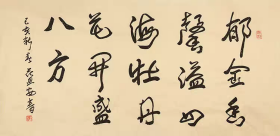 郁金香
馨溢四
海牡丹
花開盛
八方
己亥新春